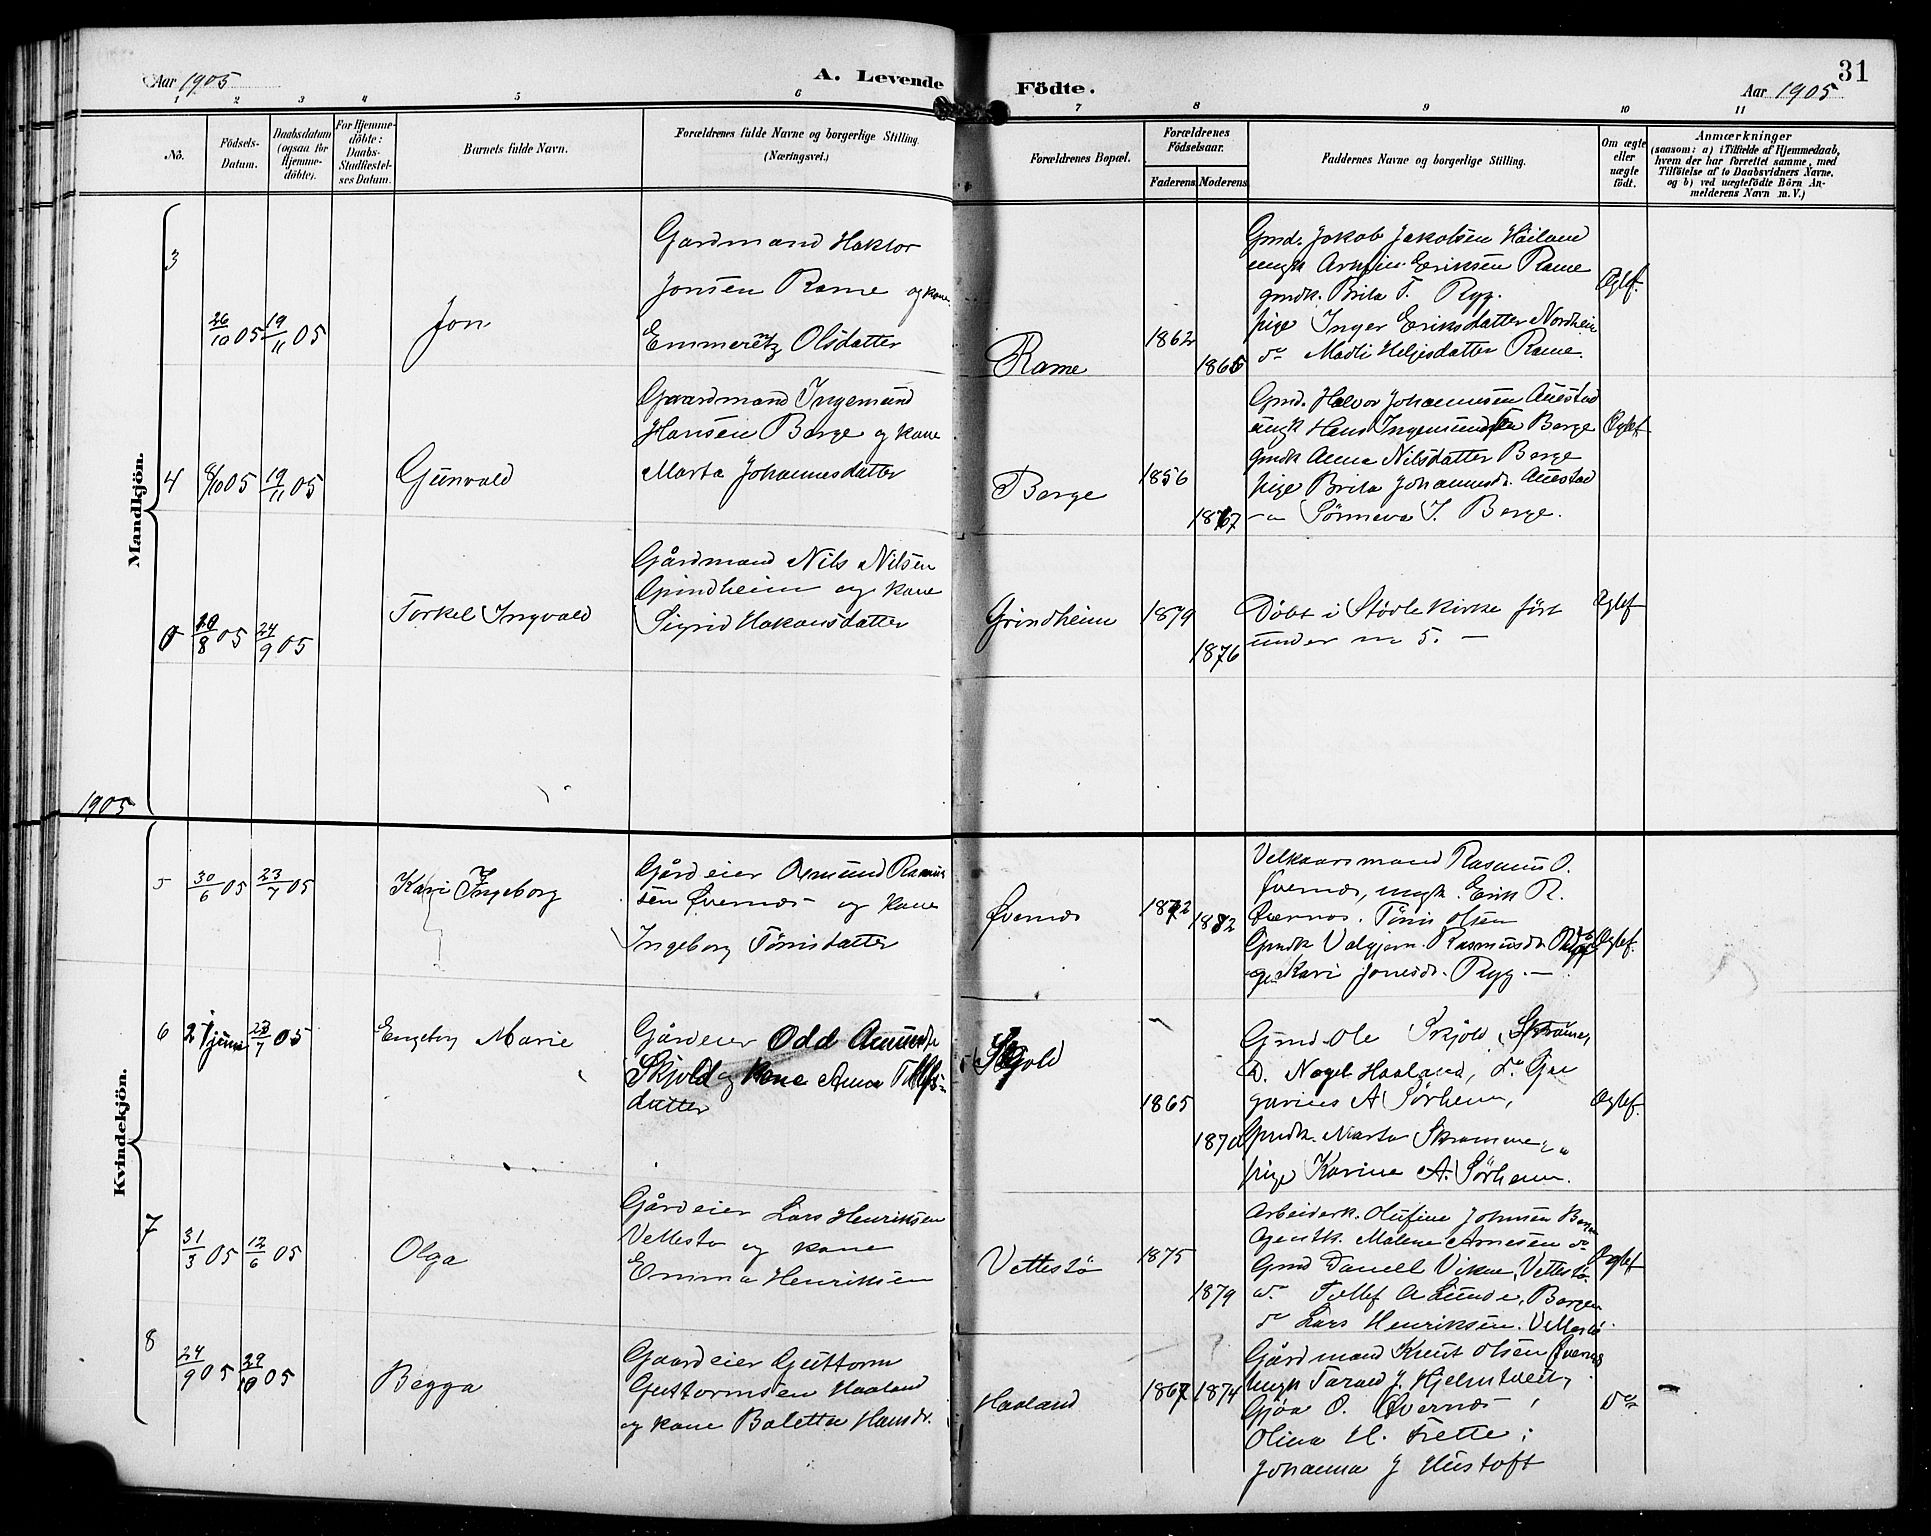 Aar 1905
A. Levende
Födte.
31
Aar 1905
1 2 3 4 5 6 7 8 9 10 11
No.
Födsels-
Datum.
Daabsdatum
(ogsaa for
Hjemme-
döbte).
For Hjemme-
döbte:
Daabs-
Stadfæstel-
ses Datum.
Barnets fulde Navn.
Forældrenes fulde Navne og borgerlige Stilling
(Næringsvei.)
Forældrenes Bopæl.
Forældrenes
Födselsaar.
Faderens Moderens
Faddernes Navne og borgerlige Stilling.
Om ægte
eller
uægte
födt.
Anmærkninger
(saasom: a) i Tilfælde af Hjemmedaab,
hvem der har forrettet samme, med
Tilföielse af to Daabsvidners Navne,
og b) ved uægtefödte Börn An-
melderens Navn m. V.)
Mandkjön.
3
26/10 05 19/11 05
Jon
Gardmand Haktor
Jonsen Rame og kone
Emmeretz Olsdatter
Rame
1862
186
Gmd. Jakob Jakobsen Håiland
ungk Arnfin Eriksen Rame
gmdk. Brita T. Ryg.
pige Inger Eriksdatter Nordheim
do Madli Heljesdatter Rame.
Ægtef.
4
8/10 05 19/11 05
Gunvald
Gaardmand Ingemund
Hansen Berge og kone
Marta Johannesdatter
Berge
1856
1867
Gmd. Halvor Johannesen Auestad
ungk Hans Ingemundsen Berge
gmdk Anna Nilsdatter Berge
pige Brita Johannesd. Auestad
Sønneva I. Berge.
Ægtef
0
/8 05 24/9 05
Torkel Ingvald
Gårdmand Nils Nilsen
Grindheim og kone
Sigrid Hakonsdatter
Grindheim
1879
1876
Døbt i Stødle kirke ført
under no 5. —
Ægtef
1905
Kvindekjön.
5
30/6 05 23/7 05
Kari Ingeborg
Gårdeier Åsmund Rasmus
sen Øvernæs og kone
Ingeborg Tønisdatter
Øvernæs
1872
1882
Velkaarsmand Rasmus O.
Øvernæs, ungk. Erik R.
Øvernæs. Tønis Olsen
Gmdk Valgjerr. Rasmusdr.
Kari Jonesdr. Ryg. —
Ægtef.
6
2 juni 23/7 05
Engeborg Marie
Gårdeier Odd Amunds
Skjold og kone Anna Tollefs-
datter
Skjold
1865
1870
Gmd. Ole Skjold,
D. Nagel Haaland, do
garius A Sørheim,
Gmdk. Marta Skromme,
pige Karine A. Sørheim.
Ægtef.
7
31/3 05 12/6 05
Olga
Gårdeier Lars Henriksen
Vettestø og kone
Emma Henriksen
Vettestø
1875
1879
Arbeiderk. Olufine Johnsen Bergen
Agentk. Malene Arnesen do
Gmd Daniel Vikne, Vettestø.
do Tollef A Lunde, Bergen
do Lars Henriksen. Vettestø.
Ægtef
8
24/9 05 29/10 05
Begga
Gaardeier Guttorm
Guttormsen Haaland
og kone Bolette Hansdr.
Haaland
1867 1874
Gårdmand Knut Olsen Øvernæs
Ungk Tarald J. Hjelmtveit,
Gjøa O. Øvernæs,
Olina H. Frette;
Johanna J Hustoft
Do